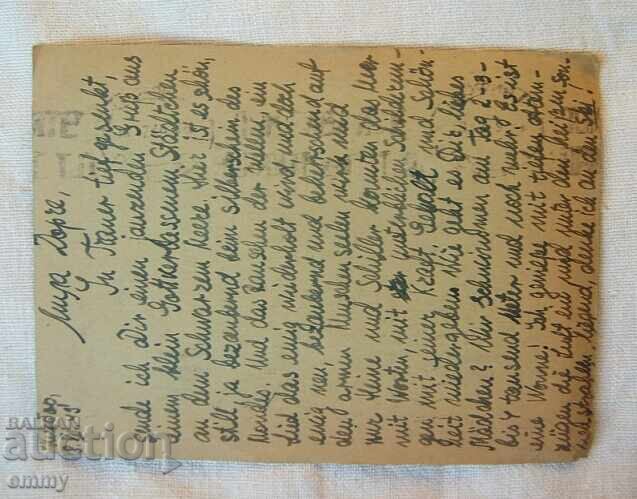 Мила Зорке,
In Trauer tief gesenkt,
sende ich Dir einen Gruß aus
einem klein Gottverlassenem Städtchen
an dem Schwarzen Meere. Hier ist es schön,
still ja bezaubernd beim silbernschein des
Mondes. Und das Rauschen der Wellen, ein
Lied das ewig wiederholt wird und doch
ewig neu, betäubend und beherrschend auf
den armen Menschen Seelen wirkt und
nur Heine und Schiller konnten das Meer
mit Worten, mit unsterblichen Schilderun-
gen mit seiner Kraft Gewalt und Schön-
heit wiedergeben. Wie geht es Dir liebes
Mädchen? Wir Schwimmen am Tag 2-3-
bis 4 tausend Meter und noch mehr? Es ist
eine Wonne! Ich genieße mit tiefen Atem-
zügen die Luft und unter den heißen Son-
nenstrahlen liegend denke ich an den Ski!
BALKAN
AUCTION
ommy